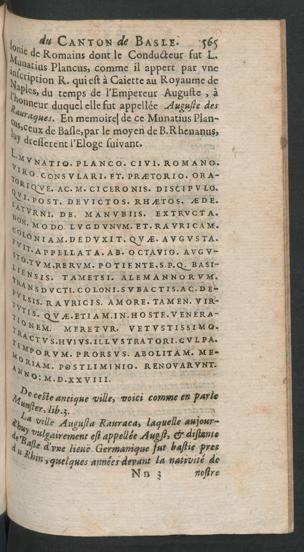 du CANTON de BASLE. 565
lonie de Romains dont le Conducteur fut L.
Munatius Plancus, comme il appert par vne
inscription R. qui est à Caiette au Royaume de
Naples, du temps de l'Empereur Auguste, à
l'honneur duquel elle fut appellée Auguste des
Rauraques. En memoire de ce Munatius Plan-
cus, ceux de Basle, par le moyen de B. Rhenanus,
luy dresserent l'Eloge suivant.
L. MVNATIO. PLANCO. CIVI. ROMANO.
VIRO. CONSVLARI. ET. PRÆTORIO. ORA-
TORIQVE. AC. M. CICERONIS. DISCIPVLO.
QVI. POST. DEVICTOS. RHÆTOS. ÆDE.
SATVRNI. DE. MANVBIIS. EXTRVCTA.
NON. MODO. LVGDVNVM. ET. RAVRICAM.
COLONIAM. DEDVXIT. QVÆ. AVGVSTA.
FVIT. APPELLATA. AB. OCTAVIO. AVGV-
STO. TVM. RERVM. POTIENTE. S.P.Q. BASI-
LIENSIS. TAMETSI. ALEMANNORVM.
TRANSDVCTI. COLONI. SVBACTIS. AC. DE-
PVLSIS. RAVRICIS. AMORE. TAMEN. VIR-
TVTIS. QVÆ. ETIAM. IN. HOSTE. VENERA-
TIONEM. MERETVR. VETVSTISSIMO.
TRACTVS. HVIVS. ILLVSTRATORI. CVLPA.
TEMPORVM. PRORSVS. ABOLITAM. ME-
MORIAM. POSTLIMINIO. RENOVARVNT.
ANNO: M.D.XXVIII.
De ceste antique ville, voici comme en parle
Munster. lib. 3.
La ville Augusta Rauraca, laquelle aujour-
d'huy vulgairement est appellée Augst, & distante
de Basle d'vne lieuë Germanique fut bastie pres
du Rhin, quelques années devant la nativité de
Nn 3 nostre